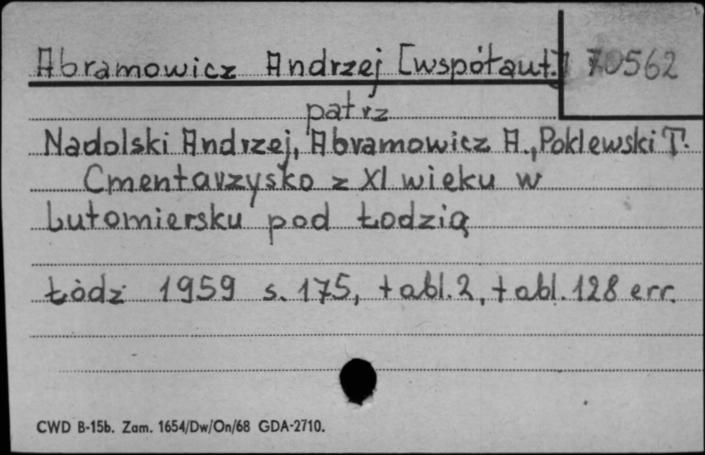 Abramowicz Andrzej [współaut.] 70562
patrz
Nadolski Andrzej, Abramowicz A., Poklewski T.
Cmentarzysko z XI wieku w
Lutomiersku pod Łodzią
Łódź 1959 s. 175, tabl. 2, tabl. 128 err.
CWD B-15b. Zam. 1654/Dw/On/68 GDA-2710.